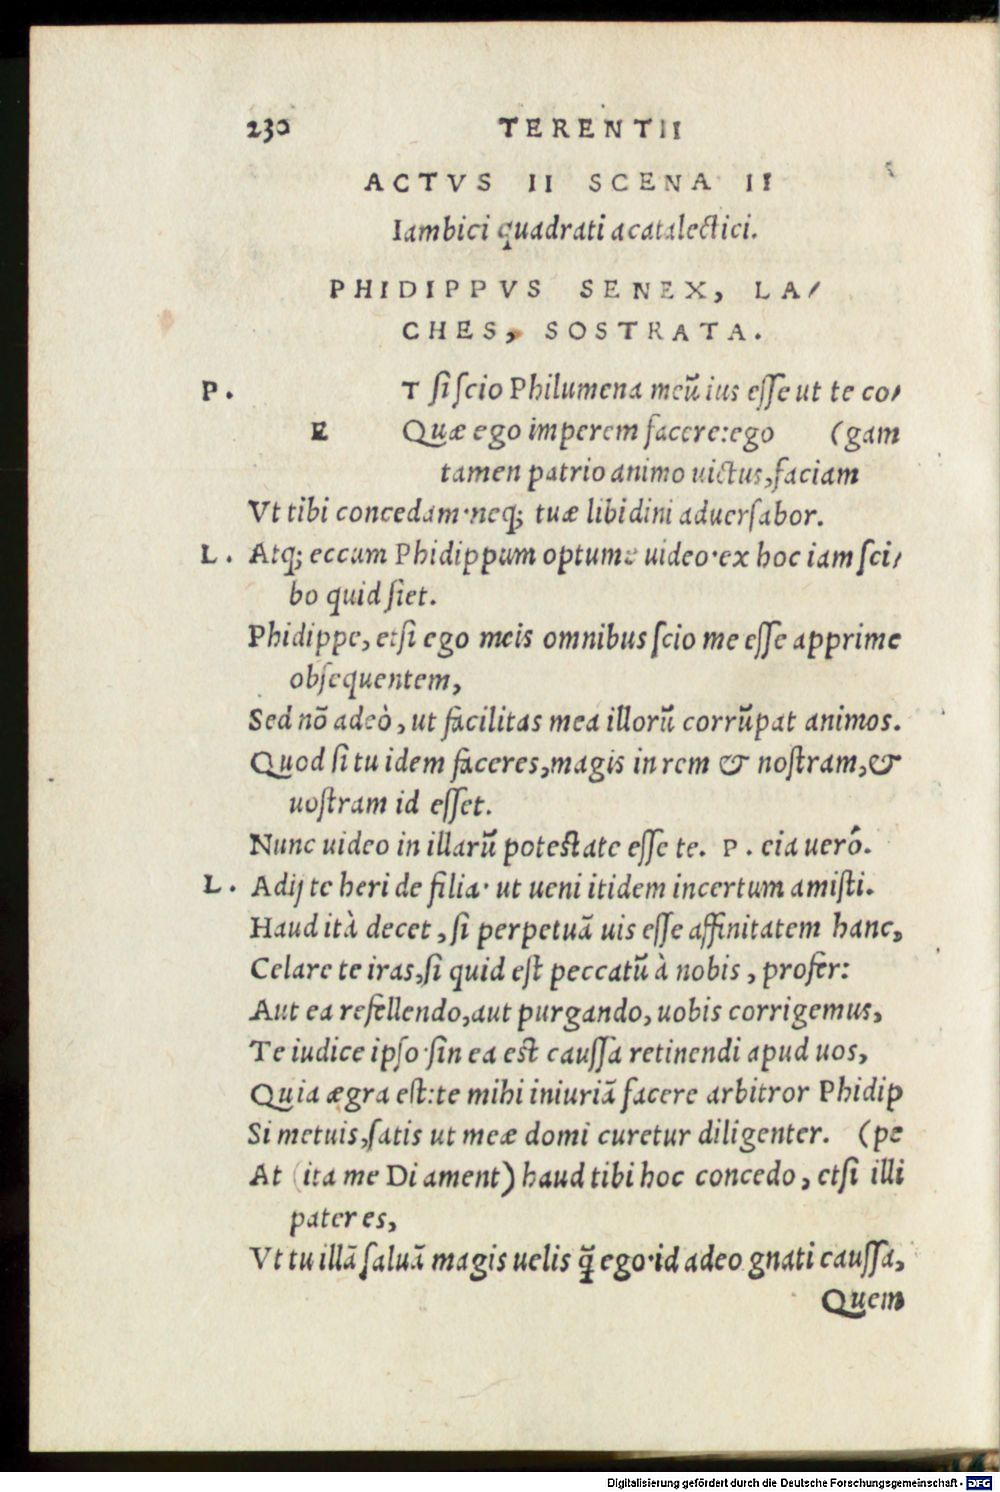 230 TERENTII
ACTVS II SCENA II
Iambici quadrati acatalectici.
PHIDIPPVS SENEX, LA/
CHES, SOSTRATA.
P. T si scio Philumena meũ ius esse ut te co/
E Quæ ego imperem facere:ego (gam
tamen patrio animo uictus,faciam
Vt tibi concedam·neq; tuæ libidini aduersabor.
L. Atq; eccum Phidippum optume uideo·ex hoc iam sci/
bo quid siet.
Phidippe, etsi ego meis omnibus scio me esse apprime
obsequentem,
Sed nõ adeò, ut facilitas mea illorũ corrũpat animos.
Quod si tu idem faceres,magis in rem & nostram,&
uostram id esset.
Nunc uideo in illarũ potestate esse te. P. eia uerò.
L. Adij te heri de filia· ut ueni itidem incertum amisti.
Haud ità decet, si perpetuã uis esse affinitatem hanc,
Celare te iras,si quid est peccatũ à nobis, profer:
Aut ea refellendo,aut purgando, uobis corrigemus,
Te iudice ipso·sin ea est caussa retinendi apud uos,
Quia ægra est:te mihi iniuriã facere arbitror Phidip
Si metuis,satis ut meæ domi curetur diligenter. (pe
At (ita me Di ament) haud tibi hoc concedo, etsi illi
pater es,
Vt tu illã saluã magis uelis q̃ ego·id adeo gnati caussa,
Quem
Digitalisierung gefördert durch die Deutsche Forschungsgemeinschaft - DFG